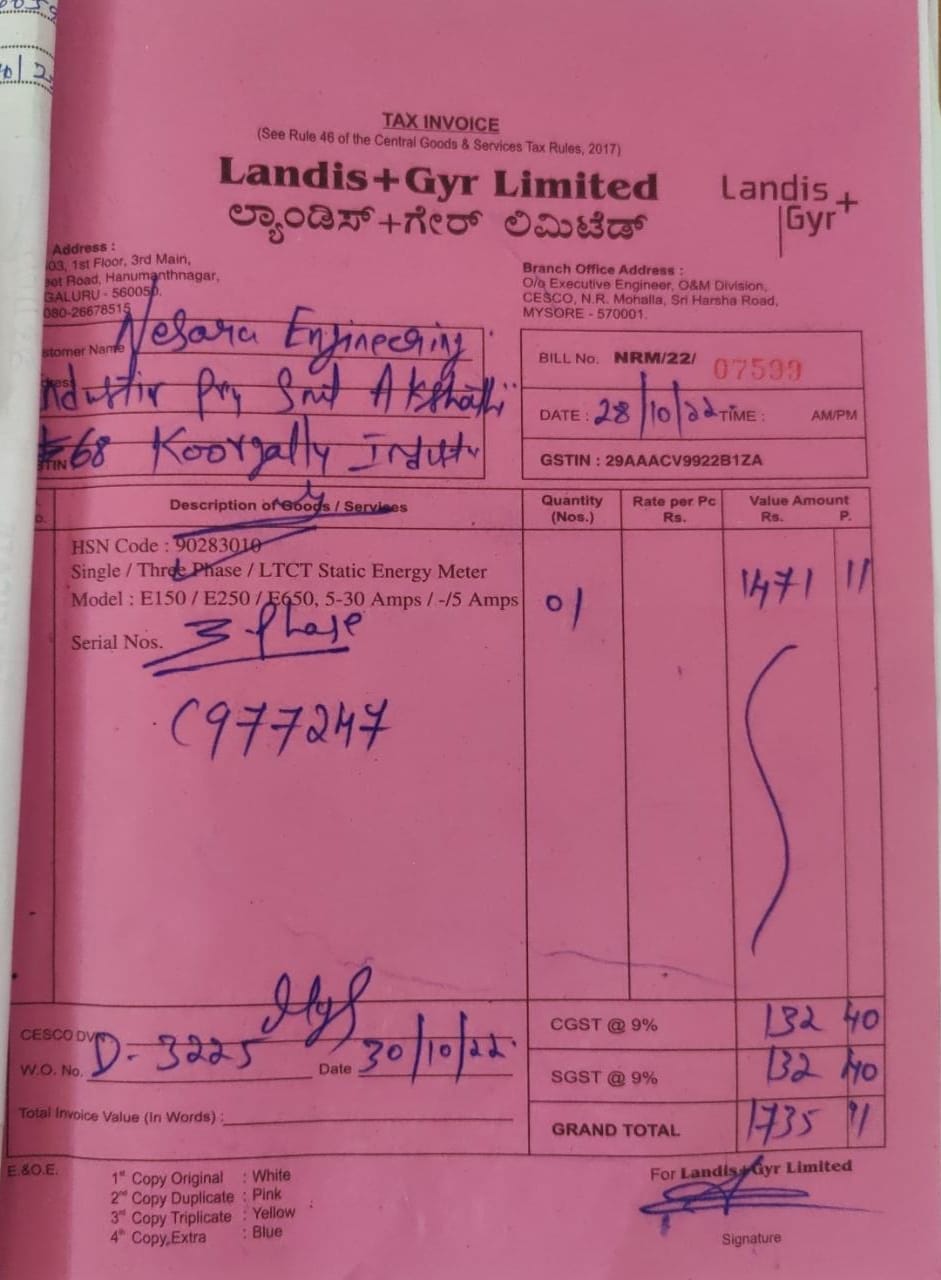 TAX INVOICE
(See Rule 46 of the Central Goods & Services Tax Rules, 2017)
Landis+Gyr Limited
ಲ್ಯಾಂಡಿಸ್+ಗೇರ್ ಲಿಮಿಟೆಡ್
Landis+
Gyr
Address :
03, 1st Floor, 3rd Main,
Road, Hanumanthnagar,
GALURU - 560050.
080-26678515
Branch Office Address :
O/o Executive Engineer, O&M Division,
CESCO, N.R. Mohalla, Sri Harsha Road,
MYSORE - 570001.
stomer Name Nesara Engineering
Smt Akshathi
68 Koorgally
BILL No. NRM/22/ 07599
DATE : 28/10/22 TIME : AM/PM
GSTIN : 29AAACV9922B1ZA
Description of Goods / Services
Quantity (Nos.)
Rate per Pc Rs.
Value Amount Rs. P.
HSN Code : 90283010
Single / Three Phase / LTCT Static Energy Meter
Model : E150 / E250 / E650, 5-30 Amps / -/5 Amps 01 1471 11
Serial Nos. 3 phase
C977247
CGST @ 9% 132 40
SGST @ 9% 132 40
GRAND TOTAL 1735 91
CESCO DVN
W.O. No. D-3225 Date 30/10/22
Total Invoice Value (In Words) :
E.&O.E.
1st Copy Original : White
2nd Copy Duplicate : Pink
3rd Copy Triplicate : Yellow
4th Copy Extra : Blue
For Landis+Gyr Limited
Signature